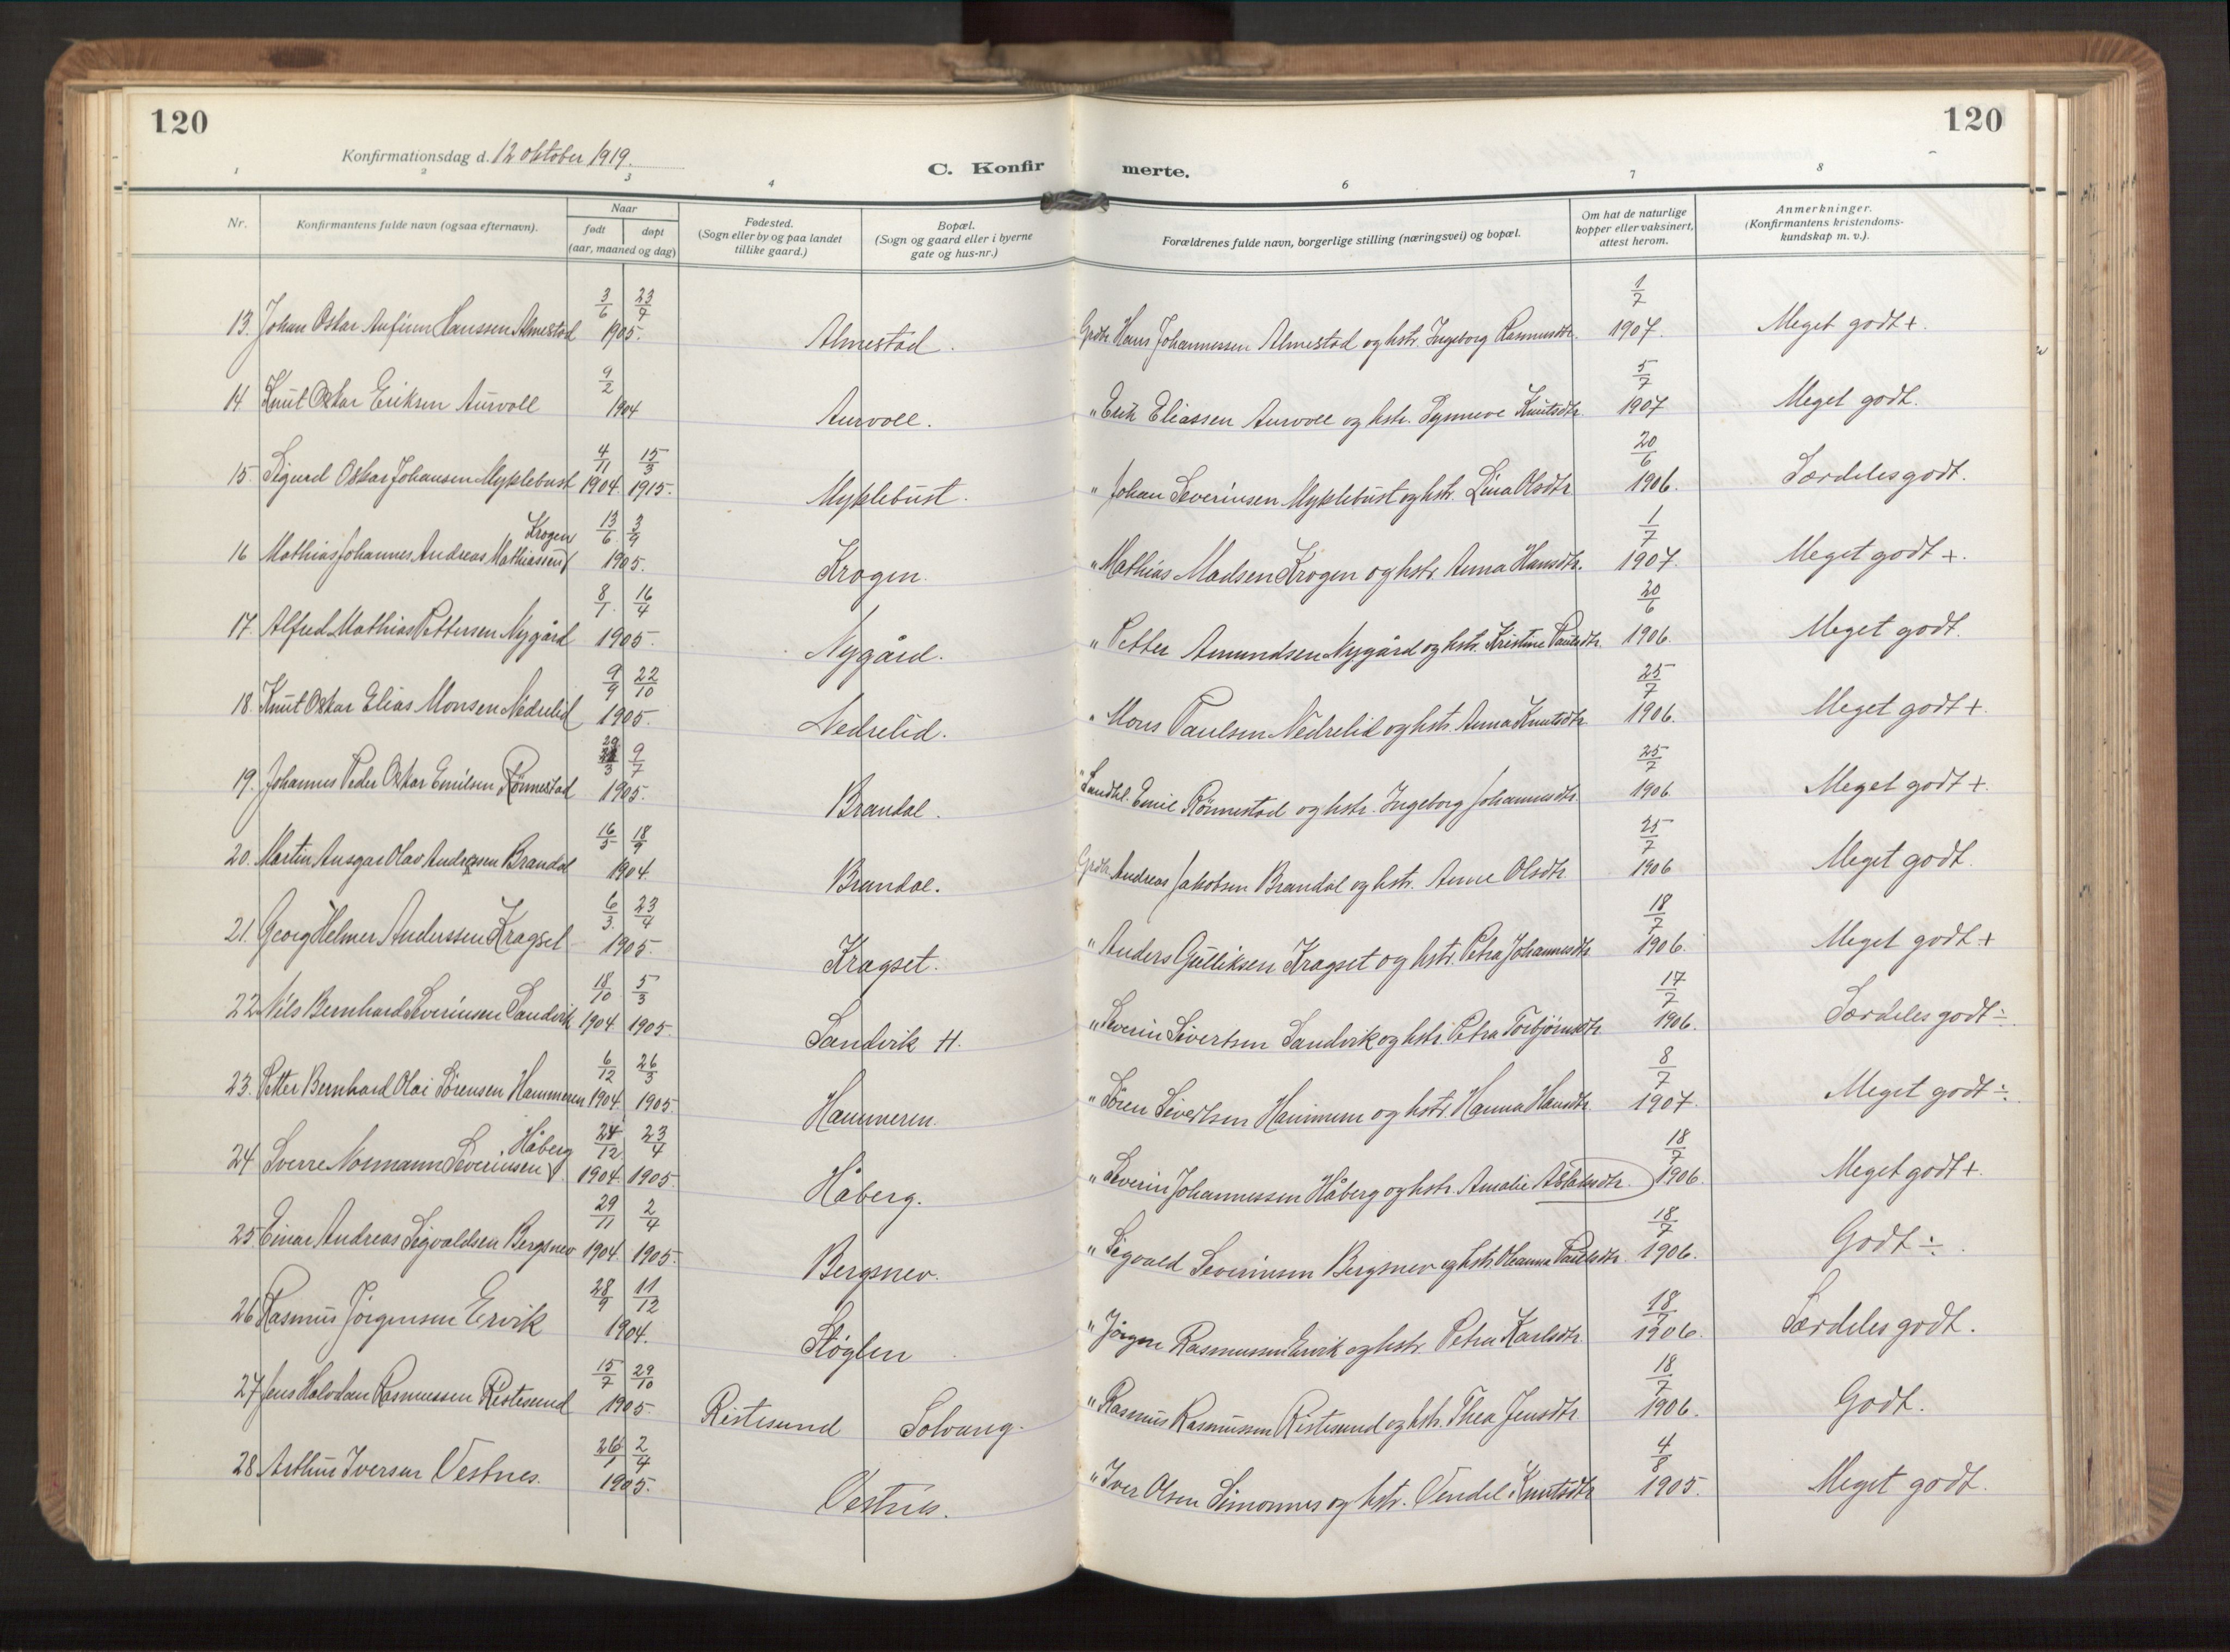 120
120
Konfirmationsdag d. 12 oktober 1919.
C. Konfir merte.
1 2 3 4 6 7 8
Nr.
Konfirmantens fulde navn (ogsaa efternavn).
Naar
født døpt
(aar, maaned og dag)
Fødested.
(Sogn eller by og paa landet
tillike gaard.)
Bopæl.
(Sogn og gaard eller i byerne
gate og hus-nr.)
Forældrenes fulde navn, borgerlige stilling (næringsvei) og bopæl.
Om hat de naturlige
kopper eller vaksinert,
attest herom.
Anmerkninger.
(Konfirmantens kristendoms-
kundskap m. v.).
13. Johan Oskar Anfinn Hanssen Almestad 3/6 23/7 1905. Almestad. Grdbr. Hans Johannessen Almestad og hstr. Ingeborg Rasmusdtr. 1/7 1907. Meget godt +.
14 Knut Oskar Eriksen Aurvoll 9/2 1904 Aurvoll. " Erik Eliassen Aurvoll og hstr. Synneve Knutsdtr. 5/7 1907 Meget godt.
15. Sigurd Oskar Johansen Myklebust 4/11 1904 15/3 1915. Myklebust. " Johan Severinsen Myklebust og hstr. Lina Olsdtr. 20/6 1906. Særdeles godt.
16 Mathias Johannes Andreas Mathiassen Krogen 13/6 3/9 1905. Krogen. " Mathias Madsen Krogen og hstr. Anna Hansdtr. 1/7 1907. Meget godt +.
17. Alfred Mathias Pettersen Nygård 8/1 16/4 1905. Nygård. " Petter Amundsen Nygård og hstr. Kristine Paulsdtr. 20/6 1906. Meget godt.
18. Knut Oskar Elias Monsen Nedrelid 9/9 22/10 1905. Nedrelid. " Mons Paulsen Nedrelid og hstr. Anna Knutsdtr. 25/7 1906. Meget godt +
19. Johannes Peder Oskar Emilsen Rönnestad 29/3 9/7 1905. Brandal. " Landhl. Emil Rönnestad og hstr. Ingeborg Johannesdtr. 25/7 1906. Meget godt +.
20. Martin Ansgar Olav Andressen Brandal 16/5 18/9 1904. Brandal. Grdbr. Andreas Jakobsen Brandal og hstr. Anne Olsdtr. 25/7 1906 Meget godt.
21. Georg Helmer Anderssen Kragset 6/3. 23/4 1905. Kragset. " Anders Gulliksen Kragset og hstr. Petra Johannesdtr. 18/7 1906. Meget godt +
22. Nils Bernhard Severinsen Sandvik 18/10 1904 5/3 1905. Sandvik H. " Severin Sivertsen Sandvik og hstr. Petra Torbjörnsdtr. 17/7 1906. Særdeles godt ÷
23. Petter Bernhard Olai Sörensen Hammeren 6/12 1904. 26/3 1905. Hammeren. " Sören Sivertsen Hammeren og hstr. Hanna Hansdtr. 8/7 1907. Meget godt ÷.
24. Sverre Normann Severinsen Håberg 24/12 1904. 23/4 1905. Håberg. " Severin Johannessen Håberg og hstr. Amalie Aslaksdtr. 18/7 1906. Meget godt +.
25. Einar Andreas Sigvaldsen Bergsnev 29/11 1904. 2/4 1905. Bergsnev. " Sigvald Severinsen Bergsnev og hstr. Oleanna Paulsdtr. 18/7 1906. Godt ÷.
26. Rasmus Jörgensen Ervik 28/9 11/12 1904. Stöylen. " Jörgen Rasmussen Ervik og hstr. Petra Karlsdtr. 18/7 1906. Særdeles godt.
27. Jens Halvdan Rasmussen Ristesund 15/7 29/10 1905. Ristesund Solvang. " Rasmus Rasmussen Ristesund og hstr. Thea Jensdtr. 18/7 1906. Godt.
28. Arthur Iversen Vestnes. 26/1 2/4 1905. Vestnes. " Iver Olsen Simonnes og hstr. Vendel Knutsdtr. 4/8 1905. Meget godt.